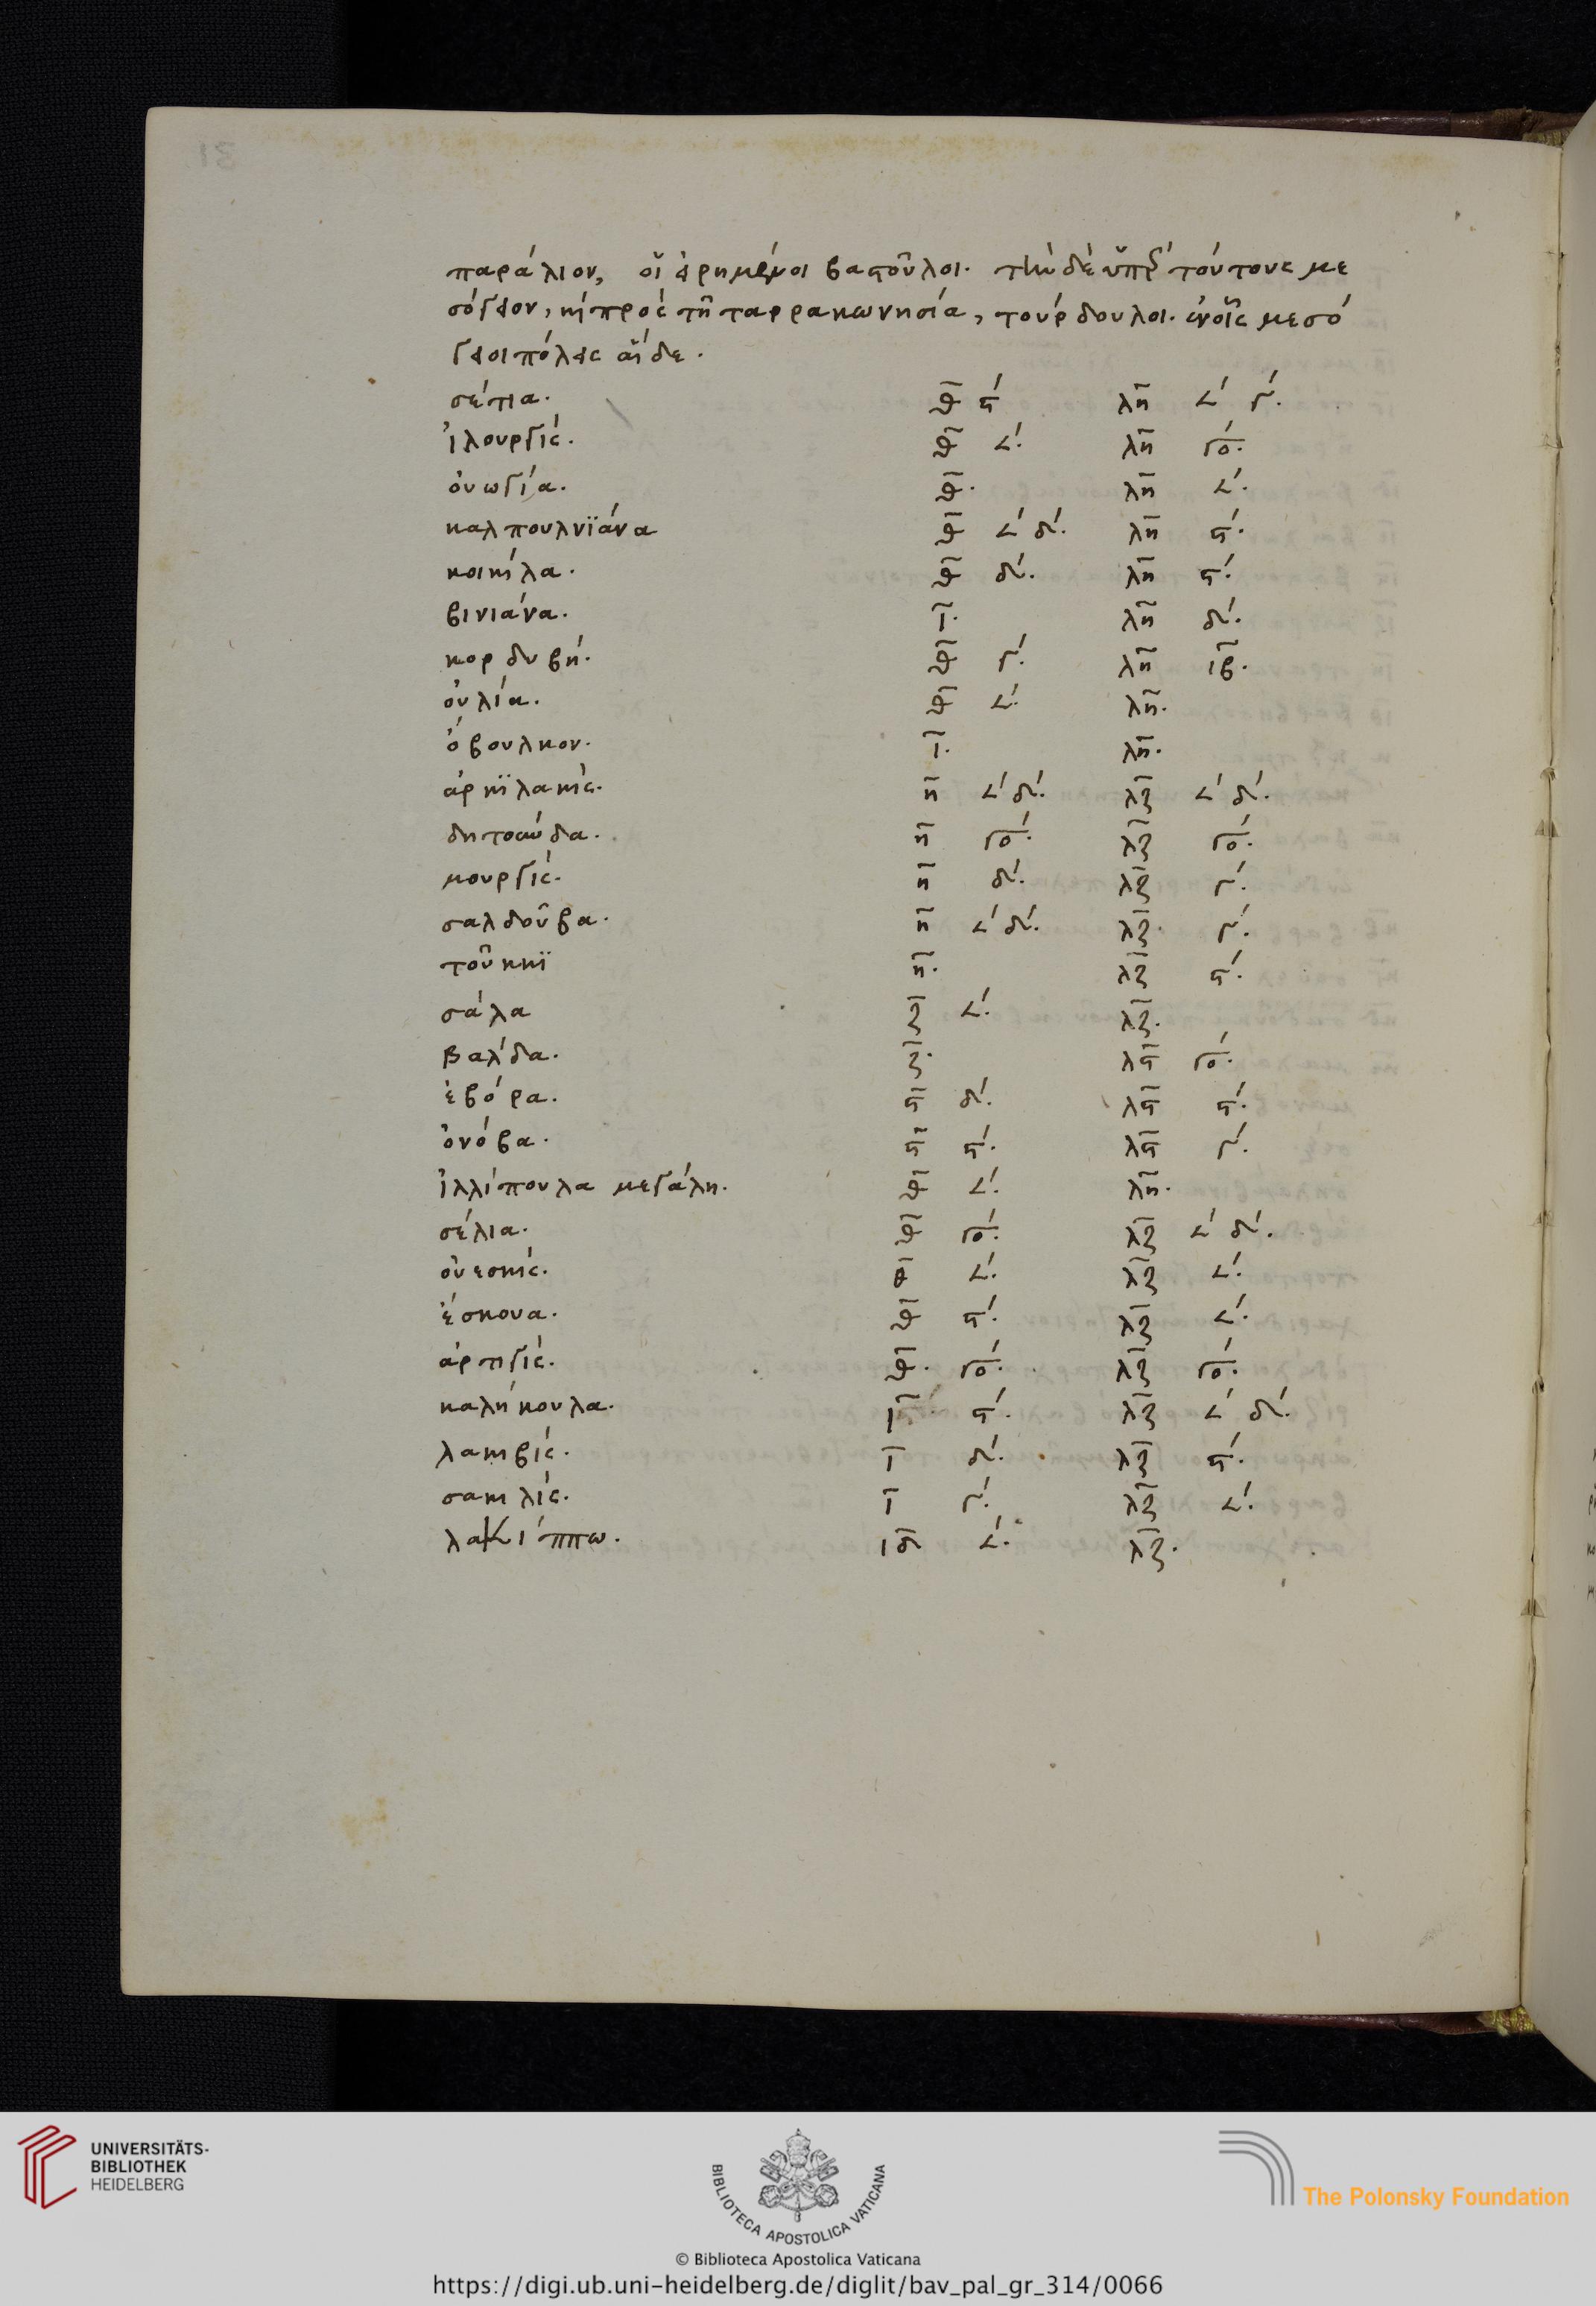 31
παράλιον, οἵ εἰρημένοι βαστοῦλοι. τὴν δὲ ὑπὲρ τούτους με
σόγειον, κỳ πρὸς τῆ ταρρακωνησία, τούρδουλοι. ἐν οἷς μεσό
γειοι πόλεις αἵδε.
σέτια. θ̅ ϛ́ λη̅ 𐅵́ γ́.
ἰλουργίς. θ̅ 𐅵́. λη̅ γό.
ὀνωγία. θ̅. λη̅ 𐅵́.
καλπουλνϊάνα θ̅ 𐅵́ δ́. λη̅ ϛ́.
κοικίλα. θ̅ δ́. λη̅ ϛ́.
βινιάνα. ι̅. λη̅ δ́.
κορδυβή. θ̅ γ́. λη̅ ιβ̅.
ὀυλία. θ̅ 𐅵́. λη̅.
ὀβουλκον. ι̅. λη̅.
ἀρκϊλακίς. η̅ 𐅵́ δ́. λζ̅ 𐅵́ δ́.
δητοαύδα. η̅ γό. λζ̅ γό.
μουργίς. η̅ δ́. λζ̅ γ́.
σαλδοῦβα. η̅ 𐅵́ δ́. λζ̅. γ́.
τοῦκκϊ η̅. λζ̅ ϛ́.
σάλα ζ̅ 𐅵́. λζ̅.
βαλ́δα. ζ̅. λϛ̅ γό.
ἐβόρα. ϛ̅ δ́. λϛ̅ ϛ́.
ὀνόβα. ϛ̅ ϛ́. λϛ̅ γ́.
ἰλλίπουλα μεγάλη. θ̅ 𐅵́. λη̅.
σέλια. θ̅ γό. λζ̅ 𐅵́ δ́.
ὀυεσκίς. θ̅ 𐅵́. λζ̅ 𐅵́.
ἐσκουα. θ̅ ϛ́. λζ̅ 𐅵́.
ἀρτιγίς. θ̅. γό. λζ̅ γό.
καλήκουλα. ι̅. ϛ́. λζ̅ 𐅵́ δ́.
λακιβίς. ι̅ δ́. λζ̅ ϛ́.
σακιλίς. ι̅ γ́. λζ̅ 𐅵́.
λακίππω. ιδ̅ 𐅵́. λζ̅.
UNIVERSITÄTS-
BIBLIOTHEK
HEIDELBERG
BIBLIOTECA APOSTOLICA VATICANA
The Polonsky Foundation
© Biblioteca Apostolica Vaticana
https://digi.ub.uni-heidelberg.de/diglit/bav_pal_gr_314/0066